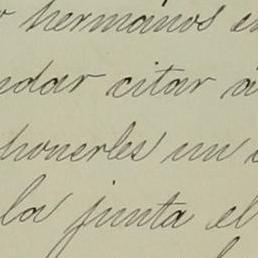 hermanos en
ndar citar á
ponerles un
la junta el